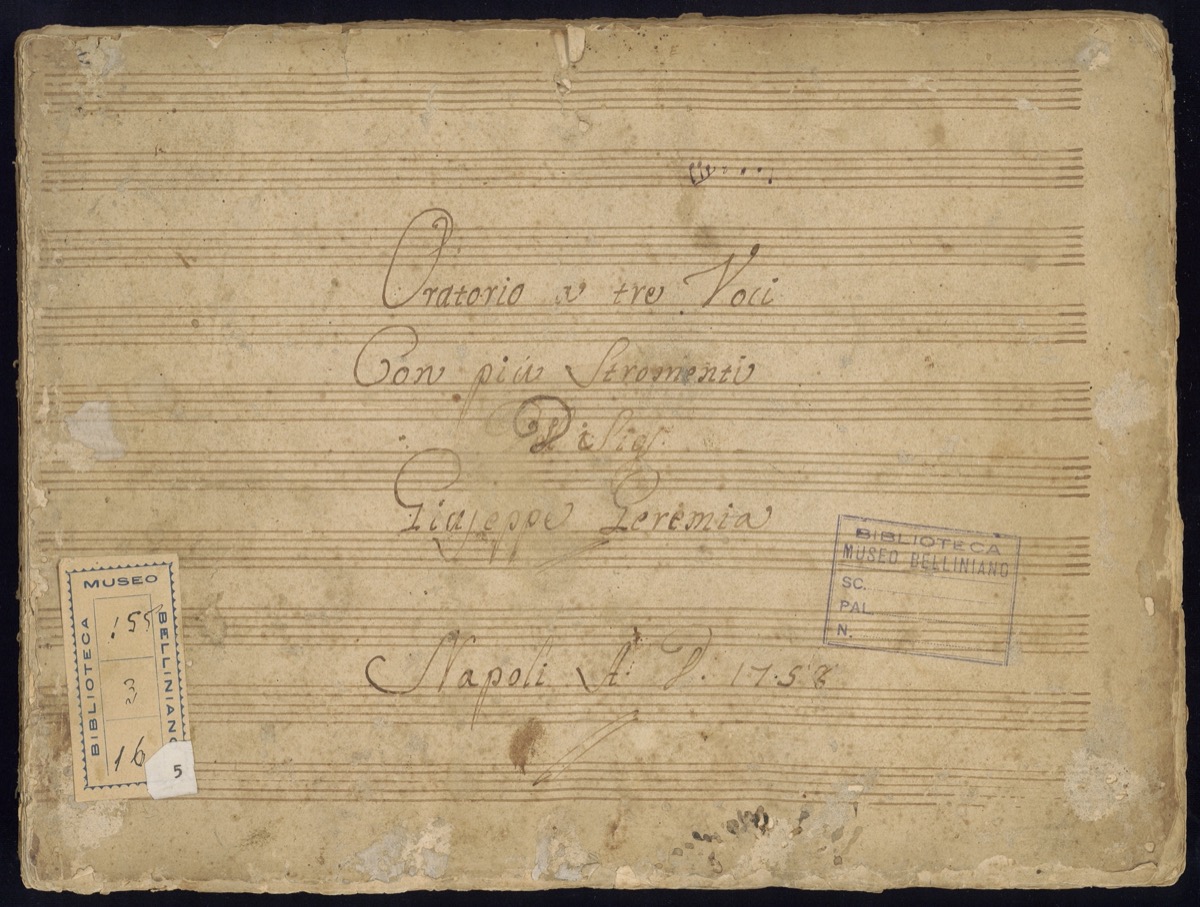 Oratorio a tre Voci
Con più Stromenti
Di Sigr.
Giuseppe Geremia
Napoli A. D. 1758
BIBLIOTECA
MUSEO BELLINIANO
SC.
PAL.
N.
MUSEO
BIBLIOTECA
BELLINIANO
155
3
16
5